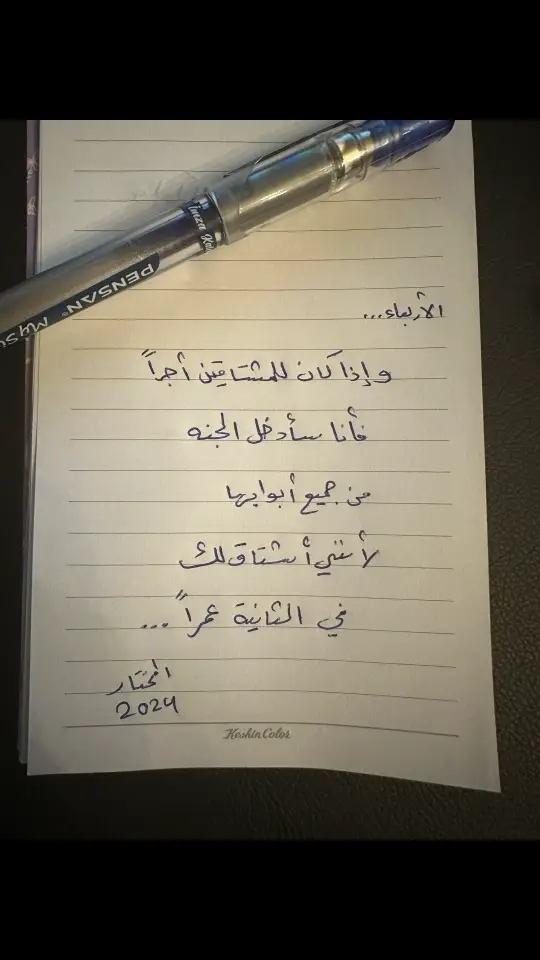 Imza Rol
PENSAN MySi
الأربعاء...
وإذا كان للمشتاقين أجراً
فأنا سأدخل الجنه
من جميع أبوابها
لأنني أشتاق لك
في الثانية عمراً ...
المختار
2024
KeskinColor